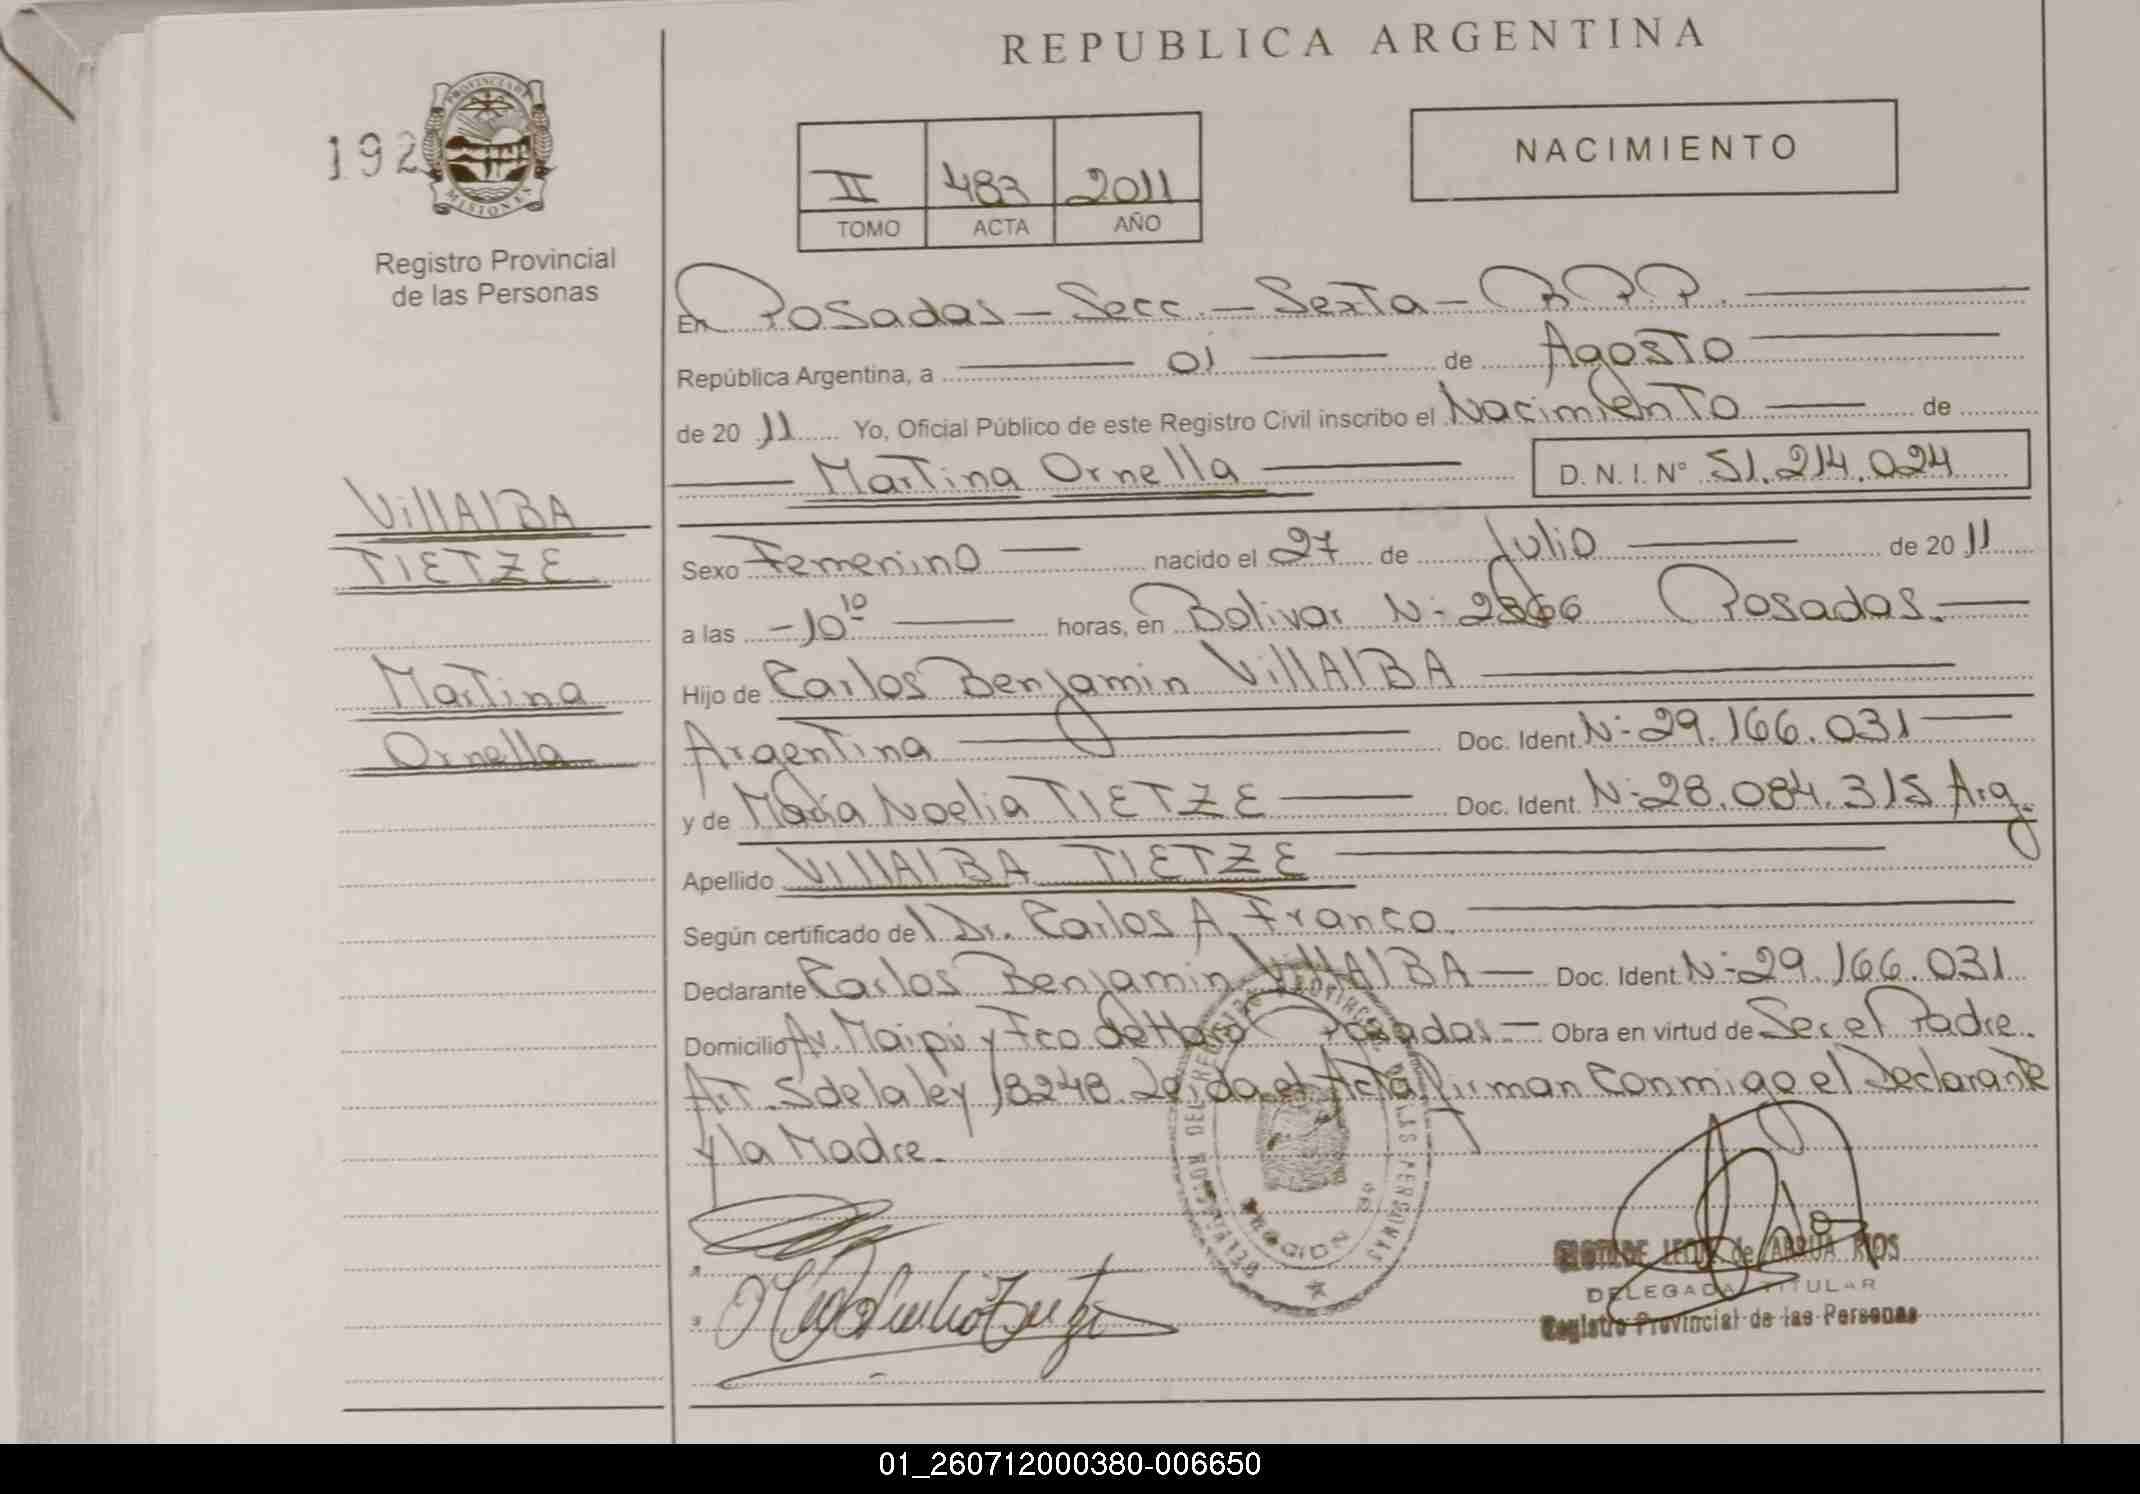 REPUBLICA ARGENTINA
192
PROVINCIA DE
MISIONES
Registro Provincial
de las Personas
II 483 2011
TOMO ACTA AÑO
NACIMIENTO
En Posadas - Secc. - Sexta - R P P.
República Argentina, a 01 de Agosto
de 20 11 Yo, Oficial Público de este Registro Civil inscribo el Nacimiento de
Martina Ornella D. N. I. N° 51.214.024
VillAlBA
TIETZE
Martina
Ornella
Sexo Femenino nacido el 27 de Julio de 20 11
a las - 10 10 horas, en Bolivar N: Posadas.
Hijo de Carlos Benjamin VillAlBA
Argentina Doc. Ident. N: 29.166.031
y de María Noelia TIETZE Doc. Ident. N: 28.084.315 Arg.
Apellido VillAlBA TIETZE
Según certificado del Dr. Carlos A. Franco.
Declarante Carlos Benjamin VillAlBA Doc. Ident. N: 29.166.031
Domicilio Av. Maipú y Fco de Haro Posadas. Obra en virtud de Ser el Padre.
Art. 5 de la ley 18248. Leida el Acta firman Conmigo el Declarante
y la Madre.
DELEGADA TITULAR
Registro Provincial de las Personas
01_260712000380-006650